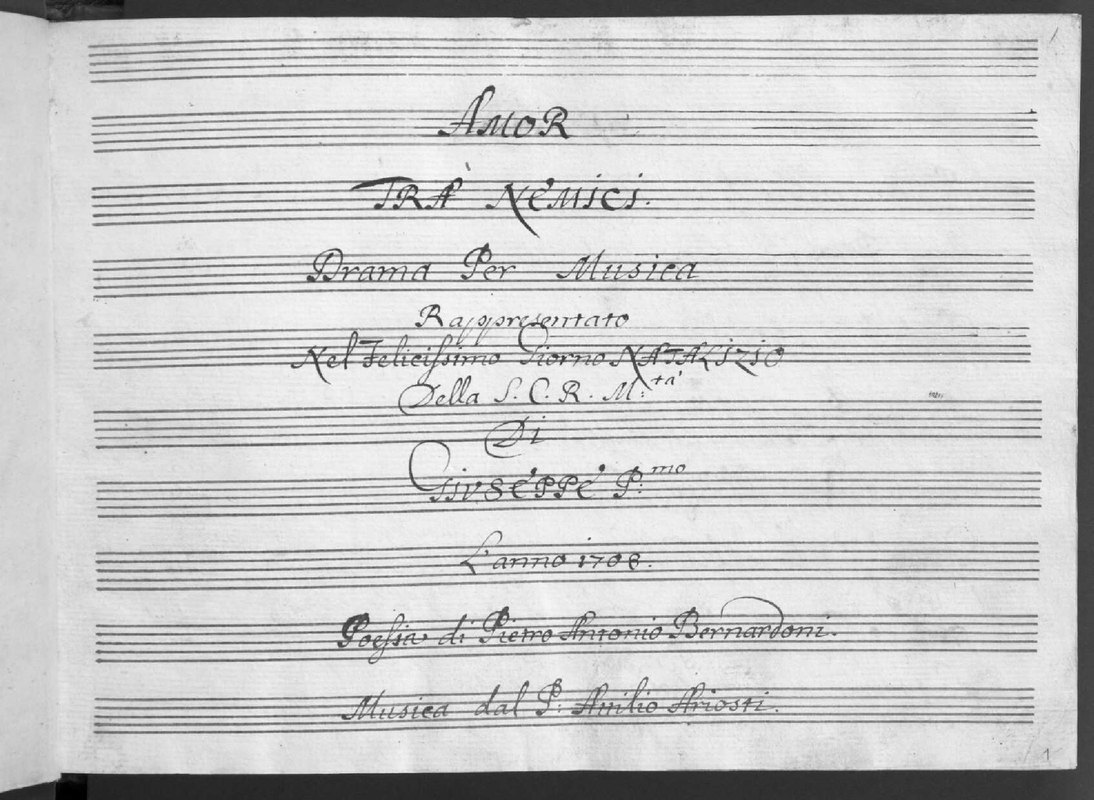 AMOR
TRÀ NEMICI.
Drama Per Musica
Rappresentato
Nel Felicissimo Giorno NATALIZIO
Della S. C. R. M:tà
Di
GIUSEPPE P:mo
L'anno 1708.
Poessia di Pietro Antonio Bernardoni.
Musica dal P: Attilio Ariosti.
1